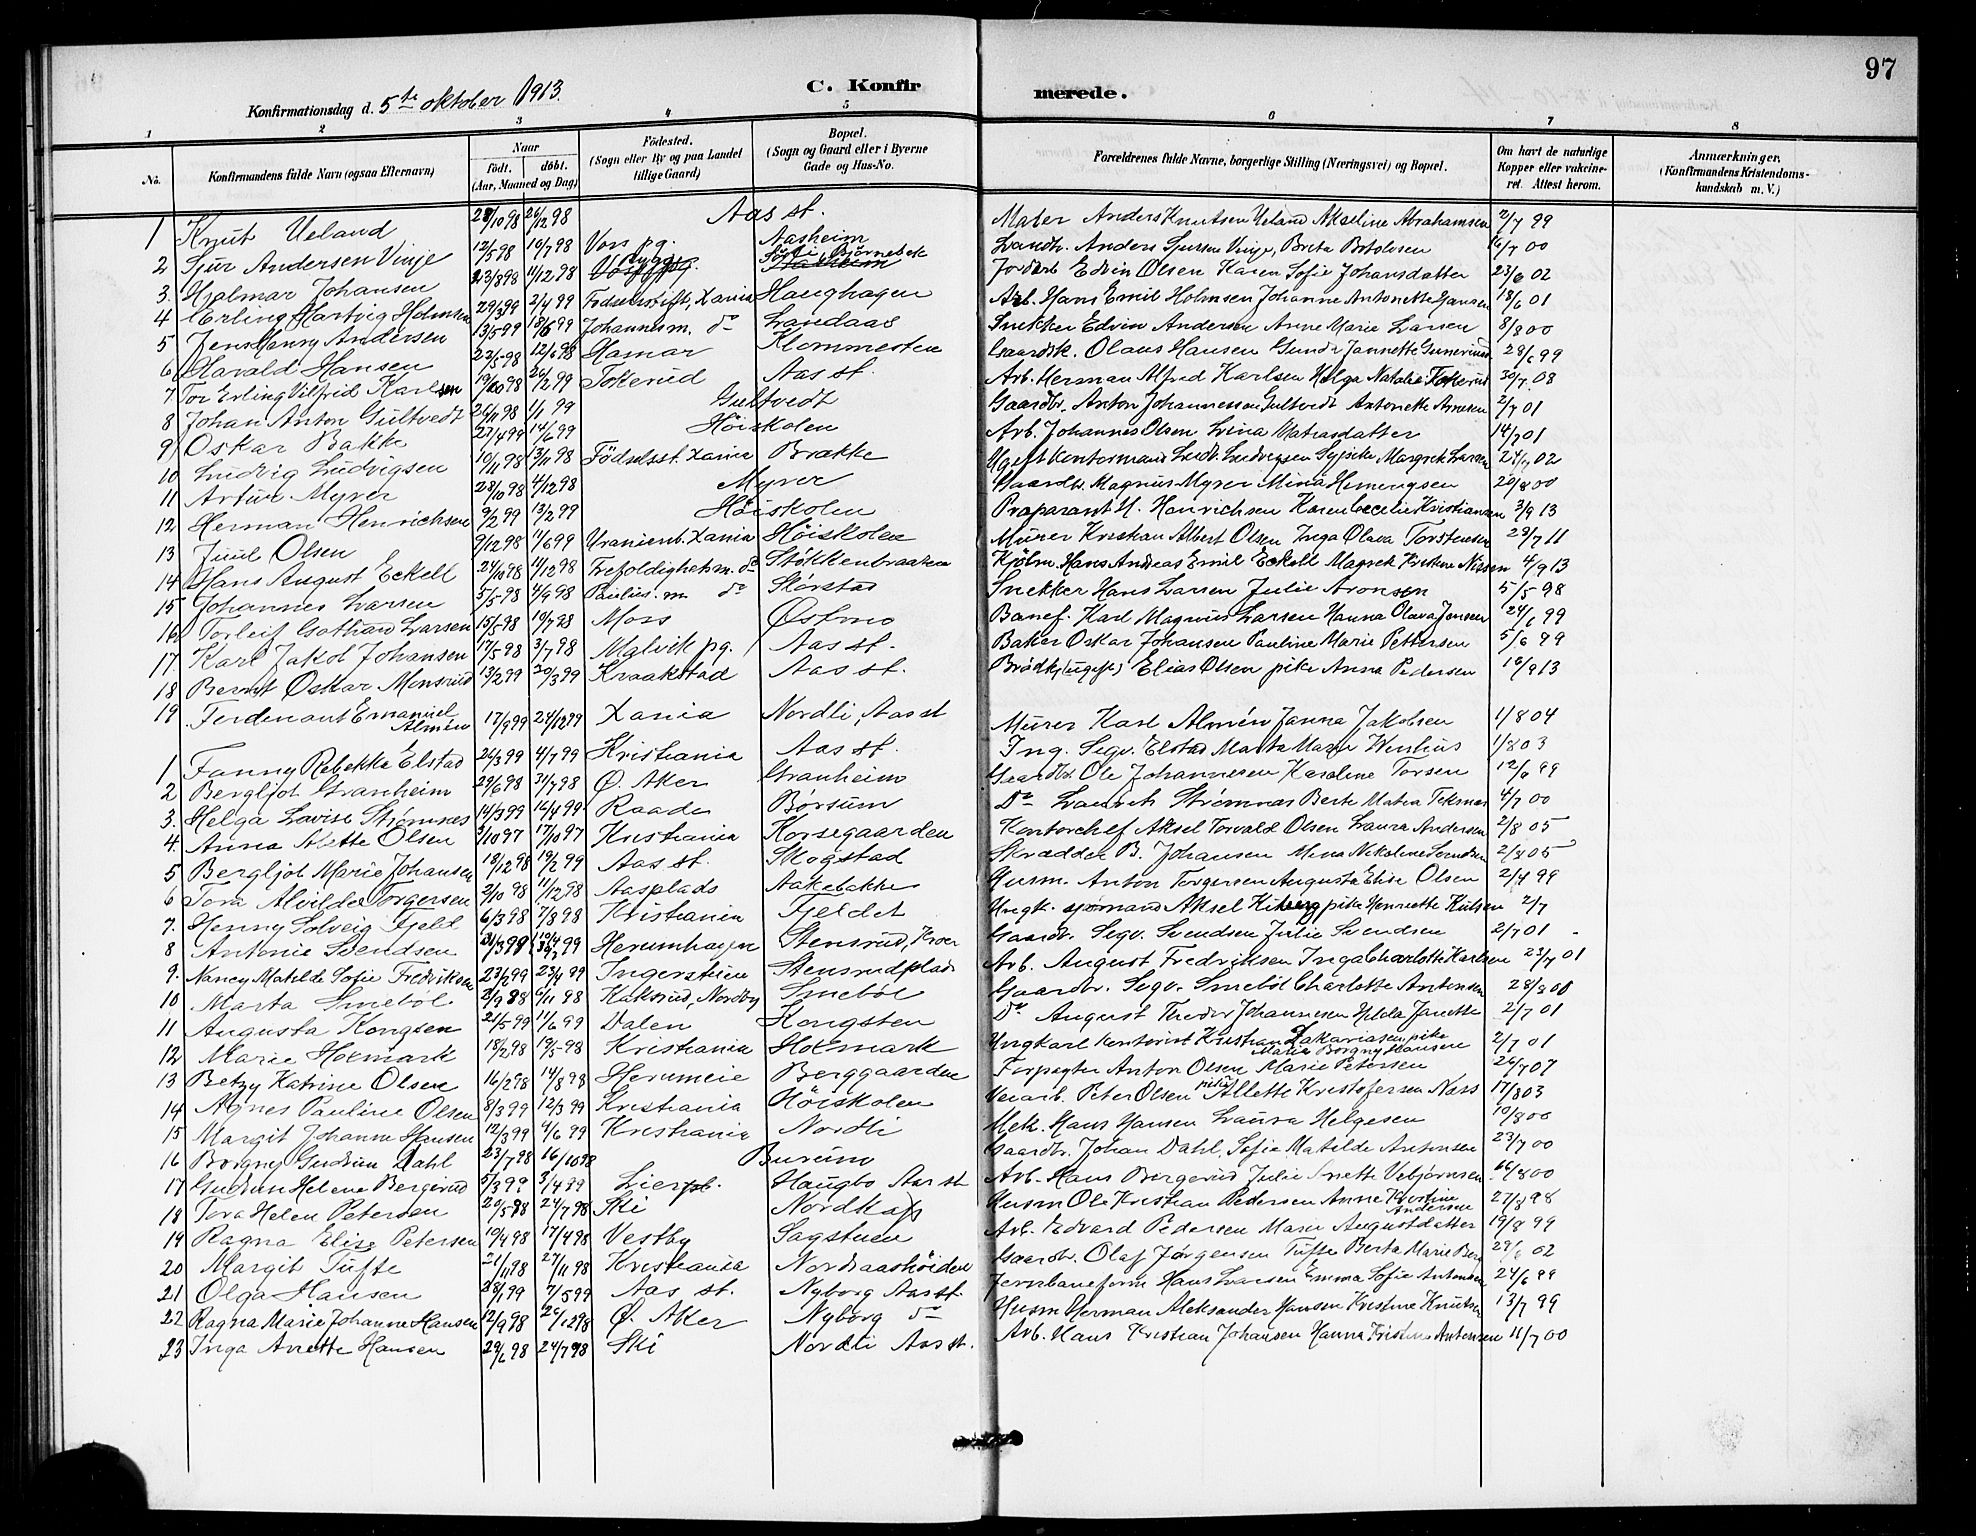 97
C. Konfirmerede.
Konfirmationsdag d. 5te oktober 1913.
1 2 3 4 5 6 7 8
No. Konfirmandens fulde Navn (ogsaa Efternavn) Naar født. døbt. (Aar, Maaned og Dag) Födested. (Sogn eller By og paa Landet tillige Gaard) Bopæl. (Sogn og Gaard eller i Byerne Gade og Hus-No. Forældrenes fulde Navne, borgerlige Stilling (Næringsvei) og Bopæl. Om havt de naturlige Kopper eller vakcineret. Attest herom. Anmærkninger. (Konfirmandens Kristendomskundskab m. V.)
1 Knut Ueland 28/10 98 26/12 98 Aas st. Maler Anders Knutsen Ueland Akseline Abrahamsen 2/7 99
2 Sjur Andersen Vinje 12/5 98 10/7 98 Vors pg. Aasheim Landbr. Anders Sjursen Vinje, Brita 6/7 00
3. Hjalmar Johansen 23/8 98 11/12 98 Rygge Björnebek Edvin Olsen Karen Sofie Johansdatter 23/6 02
4 Erling Hartvig Holmsen 29/3 99 2/4 99 Fødselsstift. Xania Haughagen Arb. Hans Emil Holmsen Johanne Antonette Hansen 18/6 01
5 Jens Henry Andersen 13/5 99 18/6 99 Johannesm. do Landaas Snekker Edvin Andersen Anne Marie Larsen 8/8 00
6 Harald Hansen 22/5 98 12/6 98 Hamar Klommesten Gaardsk. Olaus Hansen Gunda Jannette 28/6 99
7 Tor Erling Vilfrid Karlsen 19/10 98 26/2 99 Tokerud Aas st. Arb. Herman Alfred Karlsen Helga Natalie Tokerud 30/7 08
8 Johan Anton Gultvedt 26/11 98 1/1 99 Gultvedt Gaardbr. Anton Johannessen Gultvedt Antonette Arnesen 2/7 01
9 Oskar Bakke 27/4 99 14/6 99 Höiskolen Arb. Johannes Olsen Lina Matiasdatter 14/7 01
10 Ludvig Ludvigsen 10/11 98 13/11 98 Födselsst. Xania Brække Ludv. Ludvigsen Margrete Larsen 24/7 02
11 Artur Myrer 28/10 98 4/12 98 Myrer Gaardbr. Magnus Myrer Mina Hemmingsen 20/8 00
12 Herman Henrichsen 9/2 99 13/2 99 Höiskolen Præparant H. Henrichsen Karen Cecelie Kristiansen 3/9 13
13 Juul Olsen 9/12 98 11/6 99 Uranienb. Xania Höiskolen Murer Kristian Albert Olsen Inga Olava Torstensen 29/7 11
14 Hans August Eckell 24/10 98 11/12 98 Trefoldighetsm. do Støkkenbraaten Kjölm. Hans Andreas Emil Eckell Magrete Kristine Nissen 4/9 13
15 Johannes Larsen 5/5 98 4/9 98 Paulus. m. do Störstad Snekker Hans Larsen Julie Aronsen 5/5 98
16 Torleif Gothard Larsen 15/5 98 10/7 98 Moss Østmo Banef. Karl Magnus Larsen Hanna Olava Jensen 24/6 99
17 Karl Jakob Johansen 17/5 98 3/7 98 Malvik pg. Aas st. Baker Oskar Johansen Pauline Marie Pettersen 5/6 99
18 Bernt Oskar Monsrud 13/2 99 20/3 99 Kraakstad Aas st. Brödk. (ugift) Elias Olsen pike Anna Pedersen 16/9 13
19 Ferdenant Emanuel Almén 17/9 99 24/12 99 Xania Nordli, Aas st Murer Karl Almén Janna Jakobsen 1/8 04
1 Fanny Rebekka Elstad 26/3 99 4/7 99 Kristiania Aas st. Ing. Segv. Elstad Marta Marie 1/8 03
2 Bergljot Granheim 29/6 98 31/7 98 Ø. Aker Granheim Gaardbr. Ole Johannesen Karoline Torsen 12/6 99
3. Helga Lovise Strømnes 14/3 99 16/4 99 Raade Børsum Do Laurits Strømnes Berte Matea 4/7 00
4 Anna Alette Olsen 3/10 97 17/10 97 Kristiania Korsegaarden Kontorchef Aksel Torvald Olsen Laura Andersen 2/8 05
5 Bergljot Marie Johansen 18/12 98 19/2 99 Aas st. Skogstad Skrædder B. Johansen Mina Nikoline 2/8 05
6 Tora Alvilde Torgersen 2/10 98 11/12 98 Aasplads Aakebakke Husm. Anton Torgersen Augusta Elise Olsen 2/4 99
7. Henny Solveig Fjeld 6/3 98 7/8 98 Kristiania Fjeldet Ungk. sjømand Aksel pike Henriette 2/7
8 Antonie Svendsen 31/3 98 99 Herumhagen Stensrud, Kroer Gaardbr. Segv. Svendsen Julie Svendsen 2/7 01
9. Nancy Matilde Sofie Fredriksen 23/2 99 23/4 99 Ingerstuen Stensrudplads Arb. August Fredriksen Inga Charlotte Karlsen 23/7 01
10 Marta Smeböl 2/9 98 6/11 98 Kaksrud, Nordby Smeböl Gaardbr. Segv. Smeböl Charlotte Antonsen 28/8 00
11 Augusta Kongsen 21/5 99 11/6 99 Dalen Kongsten Do August Theodor Johannesen Hilda Janette 2/7 01
12 Marie Holmark 18/2 98 19/5 98 Kristiania Holmark Ungkarl Kontorist Kristian Zakariasen pike Marie Borgny Hansen 2/7 01
13 Betzy Katrine Olsen 16/2 98 14/8 98 Herumeie Berggaarden Forpagter Anton Olsen Marie Petersen 26/7 07
14 Agnes Pauline Olsen 8/3 99 12/3 99 Kristiania Höiskolen Peter Olsen Allette Kristofersen Næss 17/8 03
15 Margit Johanne Hansen 12/3 99 4/6 99 Kristiania Nordli Mek. Hans Hansen Laura Helgesen 10/8 00
16 Borgny Gudrun Dahl 23/7 98 16/10 98 Burum Gaardbr. Johan Dahl, Sofie Matilde Antonsen 23/7 00
17 Gudrun Helene Bergerud 5/3 99 3/4 99 Lier Haugbo Aas st Arb. Hans Bergerud Julie Anette Vebjørnsen 16/8 00
18 Tora Helen Petersen 20/5 98 24/7 98 Ski Nordkap Husm Ole Kristian Pedersen Anne Kristine Andersen 27/8 98
19 Ragna Elise Petersen 10/4 98 17/4 98 Vestby Sagstuen Arb. Edvard Pedersen Marie Augustdatter 19/8 99
20 Margit Tufte 21/11 98 27/11 98 Kristiania Nordaashöiden Gaardbr. Olaf Jørgensen Tufte Berta Marie 29/6 02
21 Olga Hansen 28/1 99 7/5 99 Aas st. Nyborg Aas st. Jernbaneform Hans Larsen Emma Sofie Antonsen 24/6 99
22 Ragna Marie Johanne Hansen 12/9 98 26/12 98 Ø. Aker Nyborg do Husm Herman Aleksander Hansen Kristine Knutsen 13/7 99
23 Inga Anette Hansen 29/6 98 24/7 98 Ski Nordli Aas st. Arb. Hans Kristian Johansen Hanna Kristine Antonsen 11/7 00